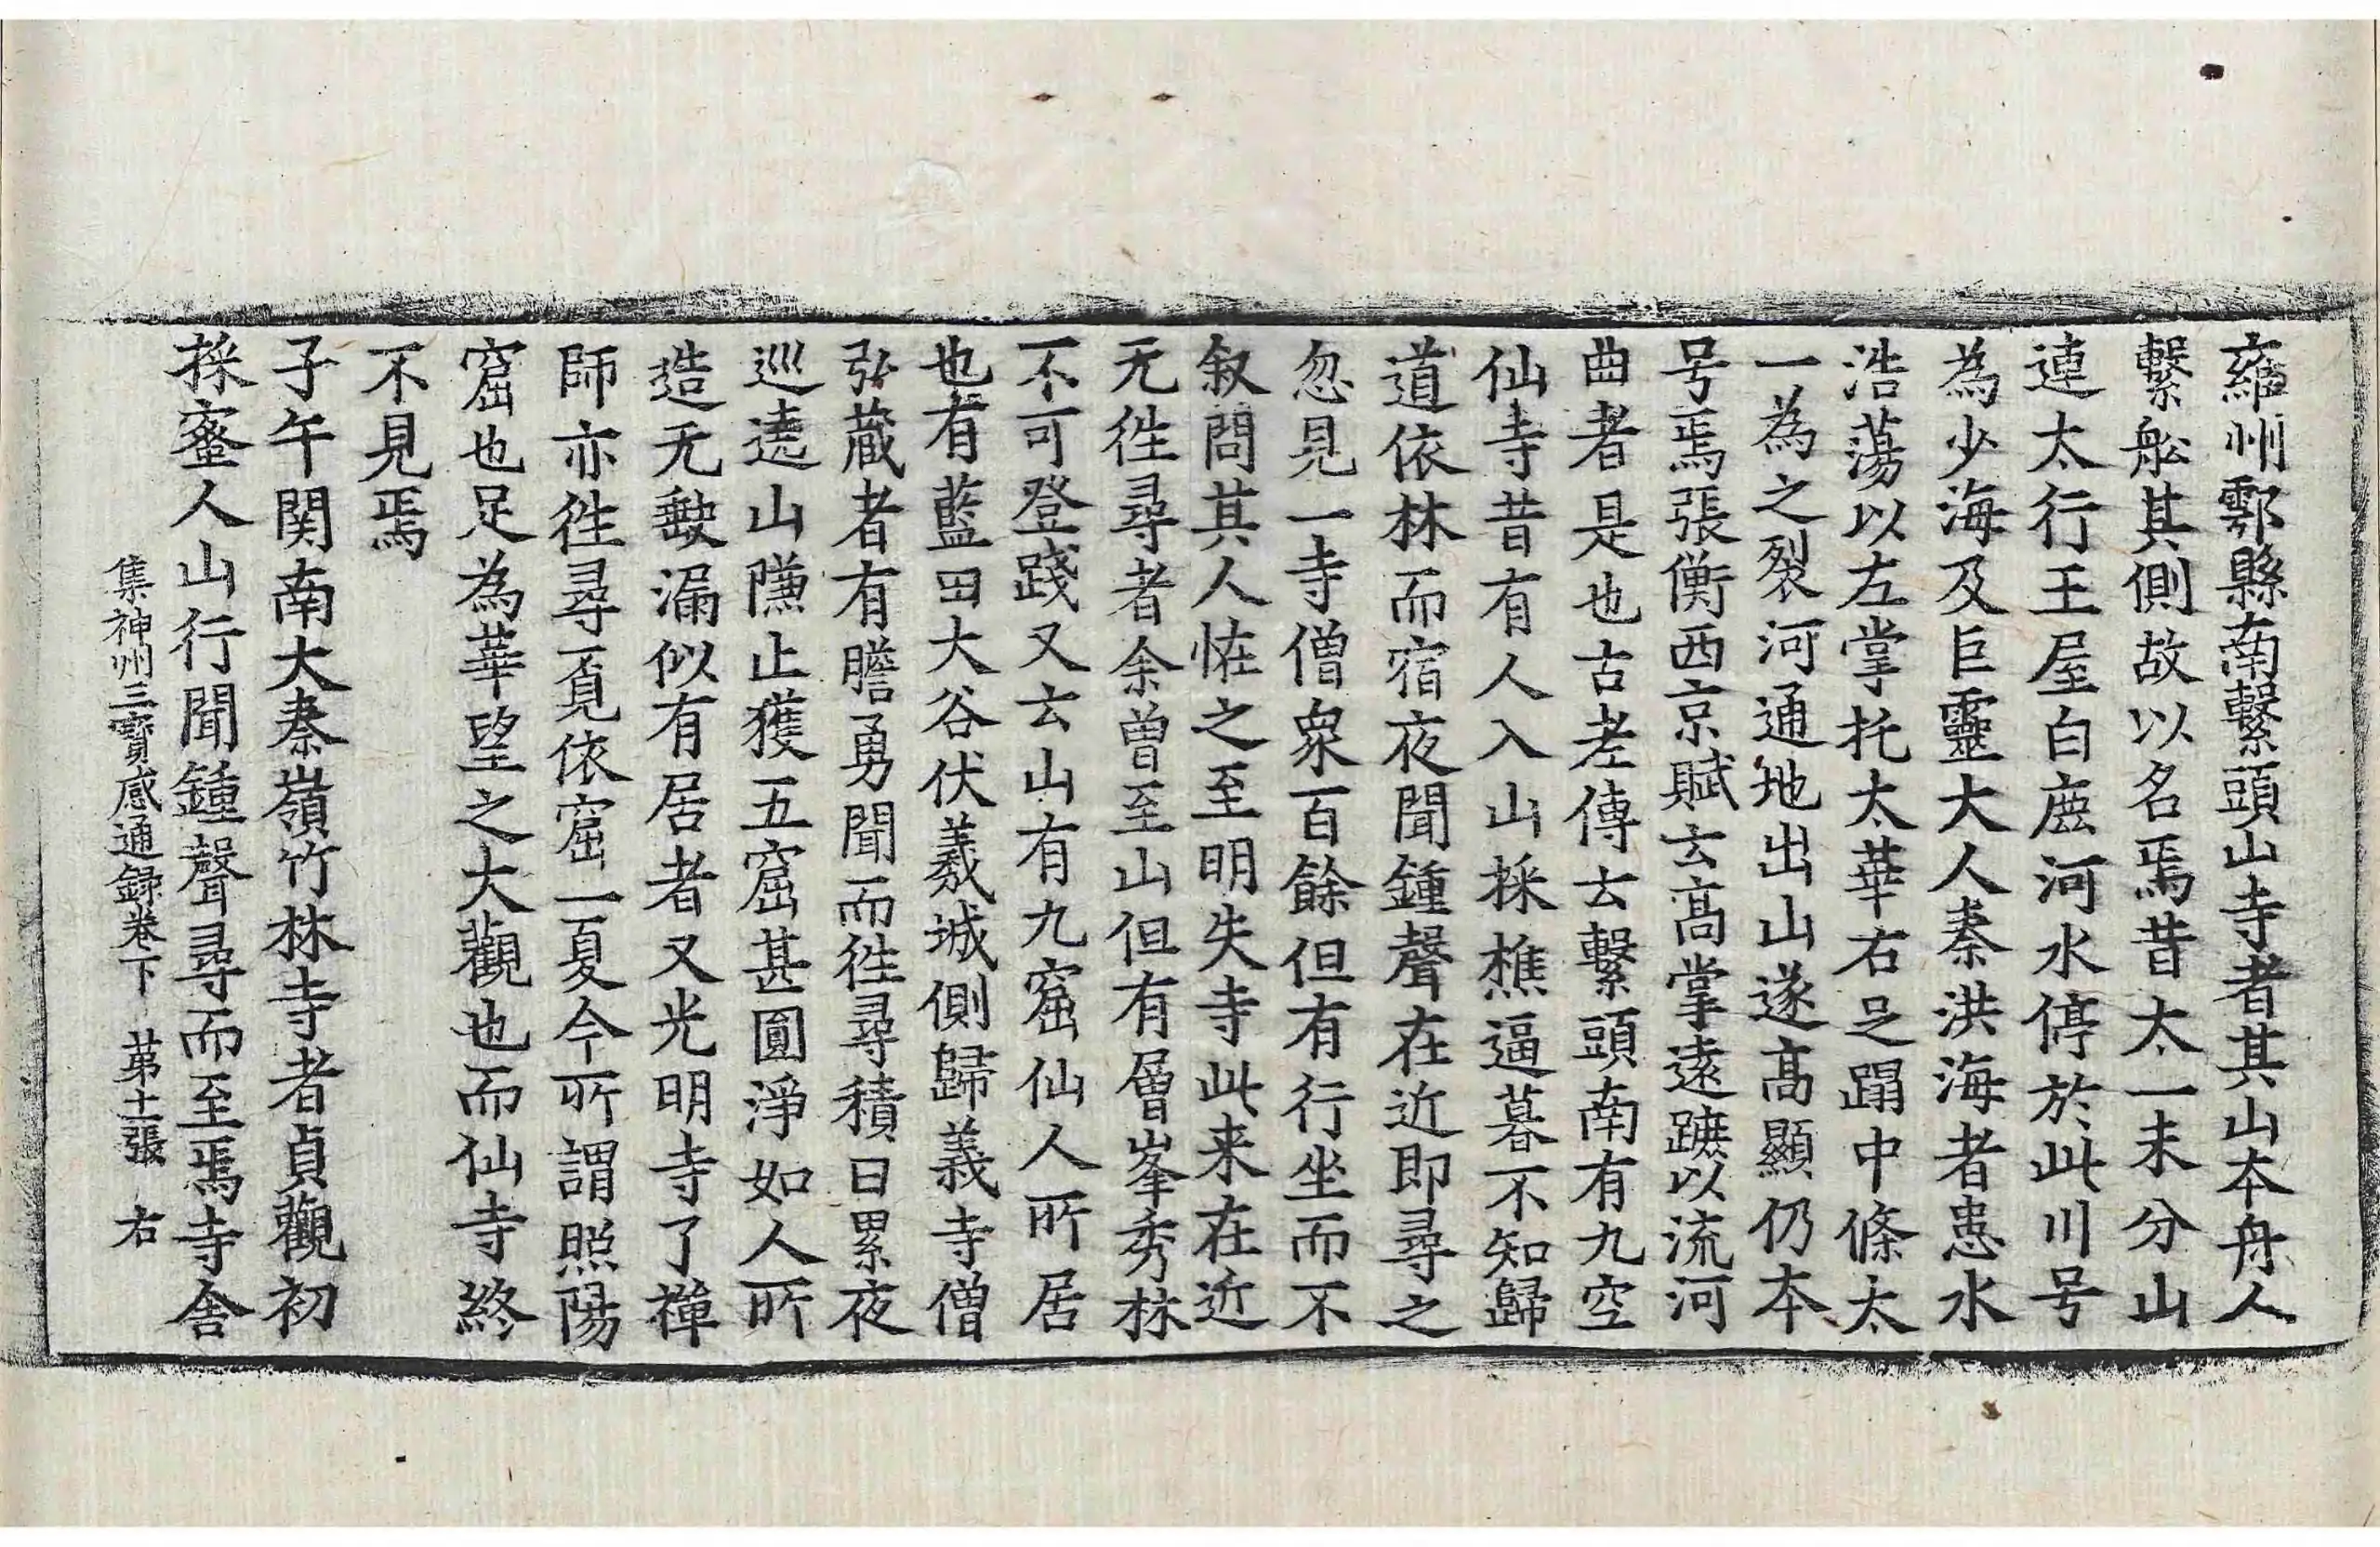 雍州鄠縣南繫頭山寺者其山本舟人
繫舩其側故以名焉昔太一未分山
連太行王屋白鹿河水停於此川号
為少海及巨靈大人秦洪海者患水
浩蕩以左掌托太華右足蹋中條太
一為之裂河通地出山遂高顯仍本
号焉張衡西京賦云高掌遠蹠以流河
曲者是也古老傳云繫頭南有九空
仙寺昔有人入山採樵逼暮不知歸
道依林而宿夜聞鍾聲在近即尋之
忽見一寺僧衆百餘但有行坐而不
叙問其人恠之至明失寺此来在近
无徃尋者余曾至山但有層峯秀林
不可登踐又云山有九窟仙人所居
也有藍田大谷伏羲城側歸義寺僧
弘藏者有膽勇聞而徃尋積日累夜
巡遶山隒止獲五窟甚圓淨如人所
造无缺漏似有居者又光明寺了禅
師亦徃尋覓依窟一夏今所謂照陽
窟也足為華望之大觀也而仙寺終
不見焉
子午関南大秦嶺竹林寺者貞觀初
採蜜人山行聞鍾聲尋而至焉寺舍
集神州三寶感通録卷下　苐十一張　右